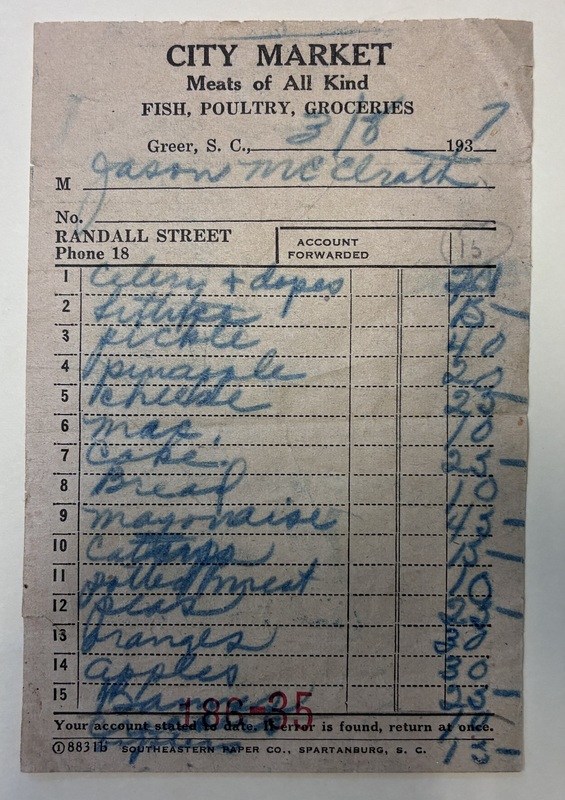 CITY MARKET
Meats of All Kind
FISH, POULTRY, GROCERIES
Greer, S. C., 3/8 1937
M Jason McElrath
No.
RANDALL STREET
Phone 18
ACCOUNT
FORWARDED
15
1 Celery + dopes
2 15
3 pickle 40
4 pineapple 20
5 cheese 25
6 mac. 10
7 Cake 25
8 Bread 10
9 mayonaise 45
10 15
11 potted meat 10
12 peas 25
13 oranges 30
14 apples 30
15 25
186-35
Your account stated to date. If error is found, return at once. 10
8831b SOUTHEASTERN PAPER CO., SPARTANBURG, S. C. 15